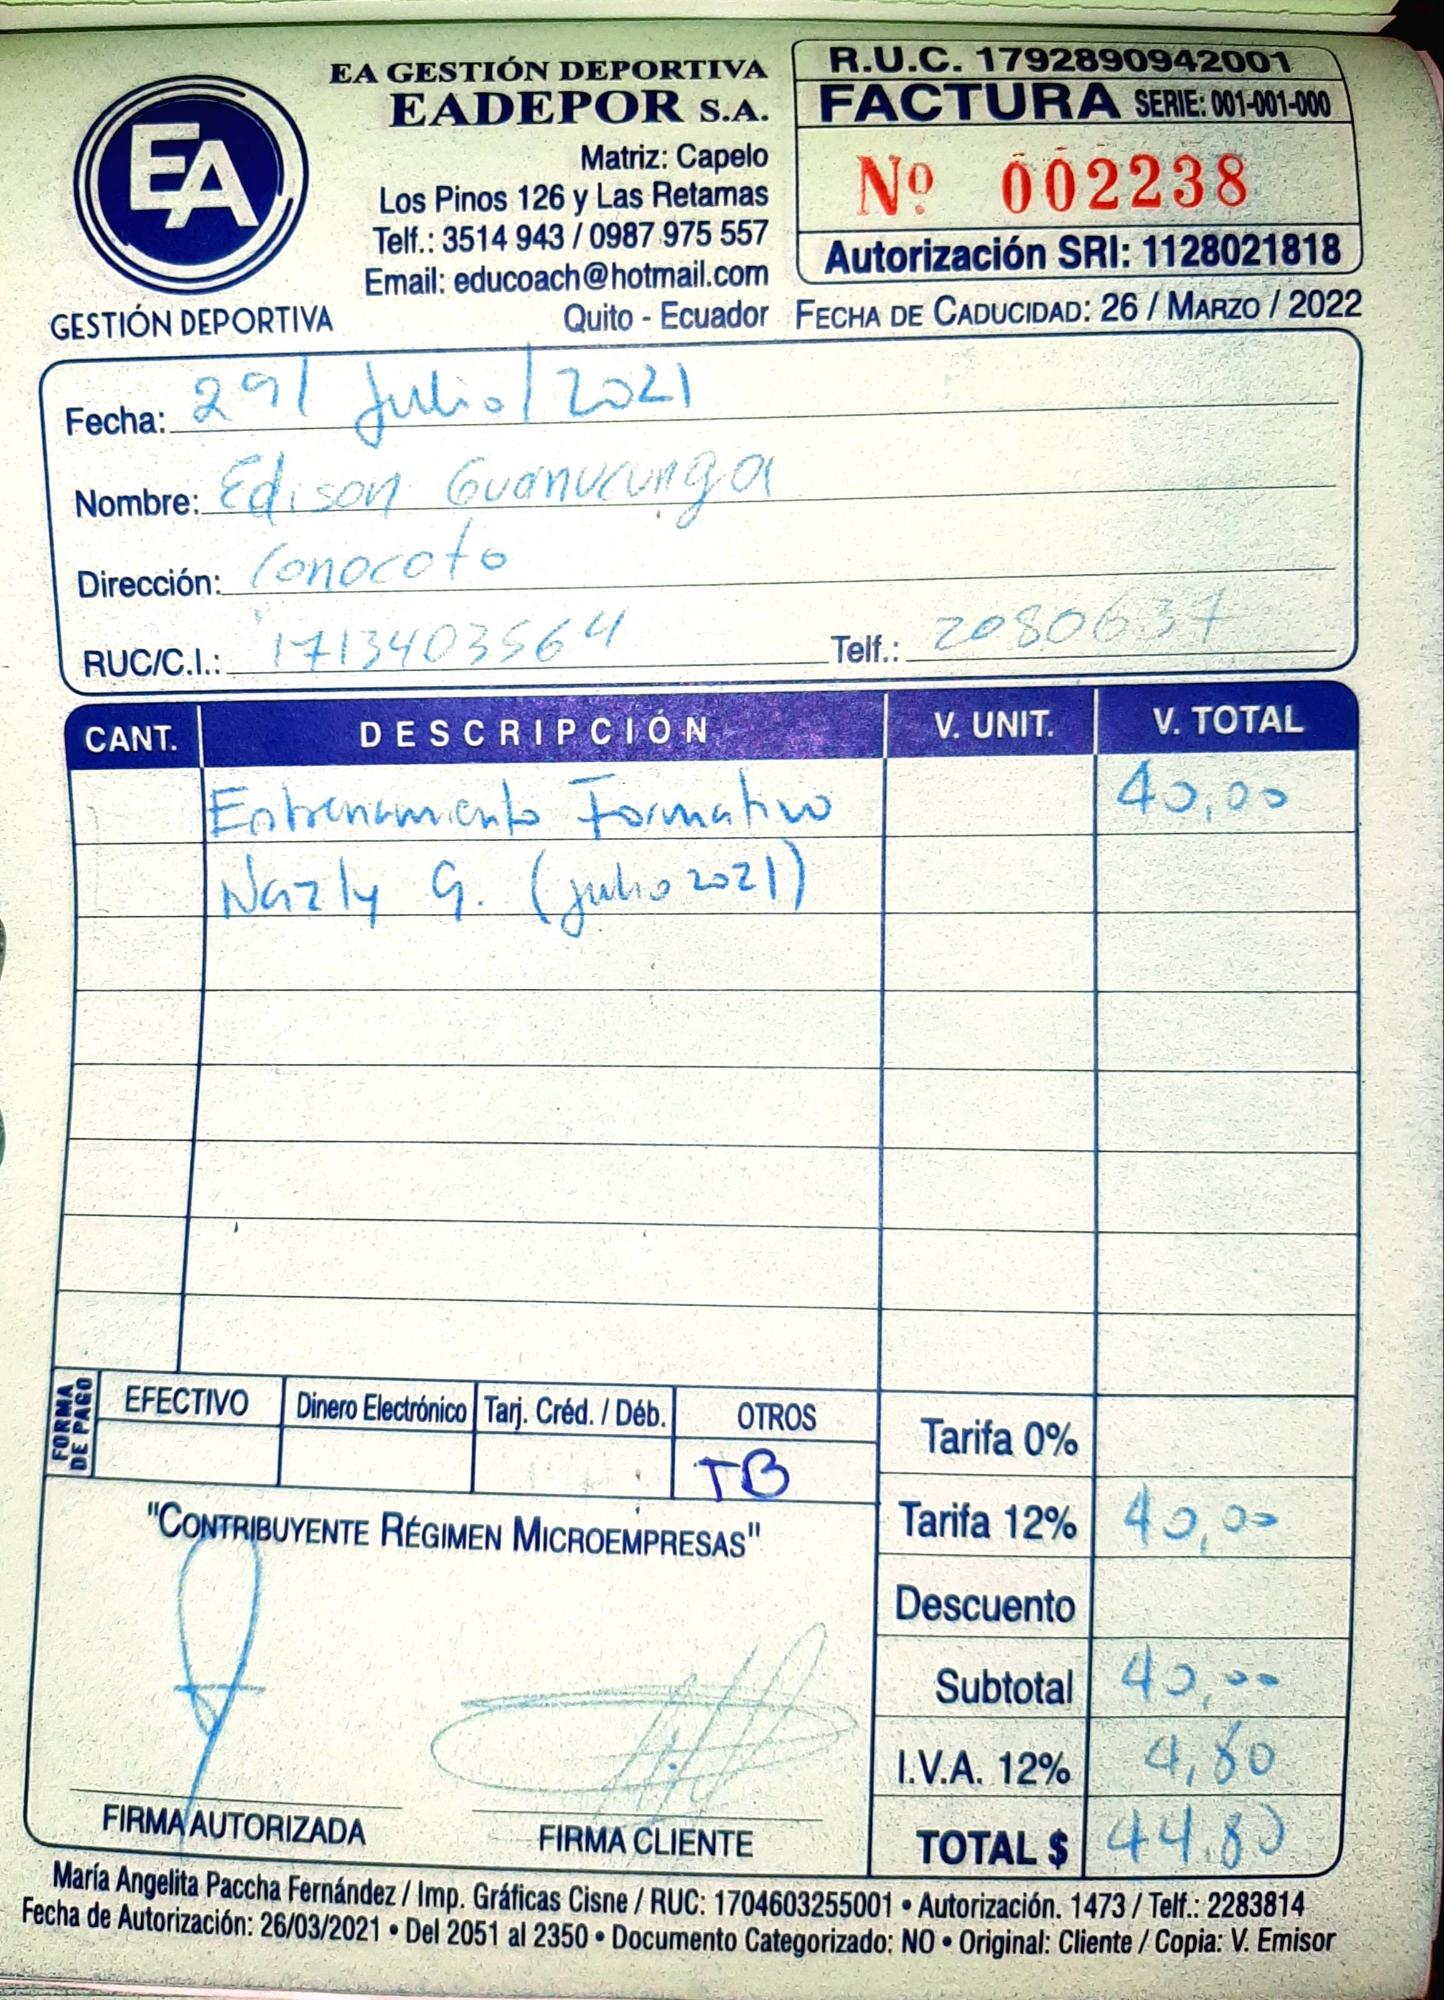 EA
GESTIÓN DEPORTIVA
EA GESTIÓN DEPORTIVA
EADEPOR S.A.
Matriz: Capelo
Los Pinos 126 y Las Retamas
Telf.: 3514 943 / 0987 975 557
Email: educoach@hotmail.com
Quito - Ecuador
R.U.C. 1792890942001
FACTURA SERIE: 001-001-000
Nº 002238
Autorización SRI: 1128021818
FECHA DE CADUCIDAD: 26 / MARZO / 2022
Fecha: 29/ Julio/2021
Nombre: Edison Guanucunga
Dirección: Conocoto
RUC/C.I.: 1713403564 Telf.: 2080637
CANT. DESCRIPCIÓN V. UNIT. V. TOTAL
Entrenamiento Formativo 40,00
Nazly G. (julio 2021)
FORMA DE PAGO
EFECTIVO Dinero Electrónico Tarj. Créd. / Déb. OTROS
TB
"CONTRIBUYENTE RÉGIMEN MICROEMPRESAS"
FIRMA AUTORIZADA FIRMA CLIENTE
Tarifa 0%
Tarifa 12% 40,00
Descuento
Subtotal 40,00
I.V.A. 12% 4,80
TOTAL $ 44.80
María Angelita Paccha Fernández / Imp. Gráficas Cisne / RUC: 1704603255001 • Autorización. 1473 / Telf.: 2283814
Fecha de Autorización: 26/03/2021 • Del 2051 al 2350 • Documento Categorizado: NO • Original: Cliente / Copia: V. Emisor